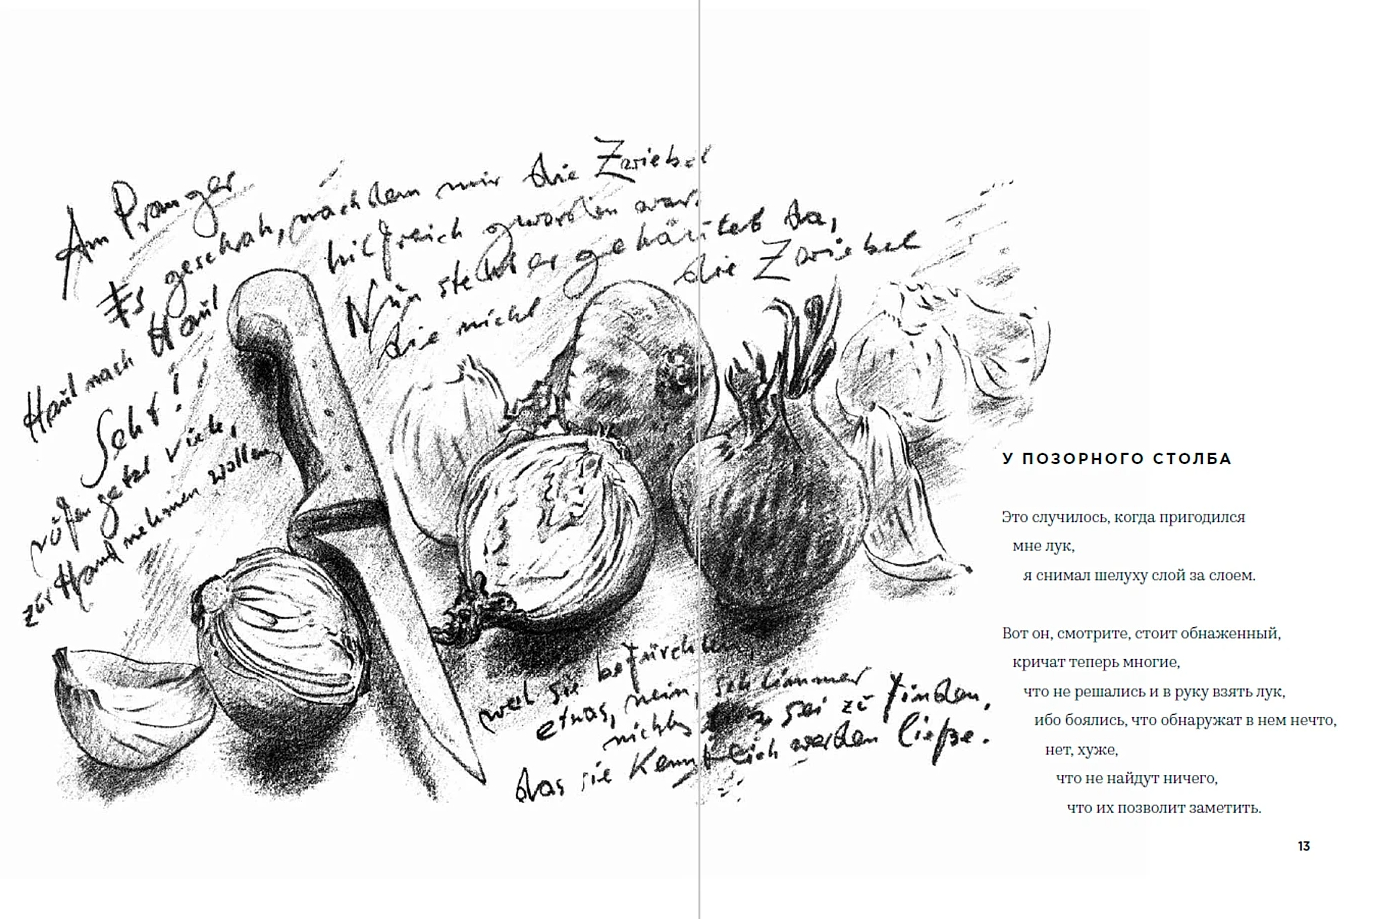 Am Pranger
Es geschah, nachdem mir die Zwiebel
hilfreich geworden war:
Haut nach Haut
Seht!
Nun steht er gehäutet da,
rufen jetzt viele,
die nicht die Zwiebel
zur Hand nehmen wollen,
weil sie befürchten,
etwas, nein, schlimmer
nichts sei zu finden,
das sie kenntlich werden ließe.
У ПОЗОРНОГО СТОЛБА
Это случилось, когда пригодился
мне лук,
я снимал шелуху слой за слоем.
Вот он, смотрите, стоит обнаженный,
кричат теперь многие,
что не решались и в руку взять лук,
ибо боялись, что обнаружат в нем нечто,
нет, хуже,
что не найдут ничего,
что их позволит заметить.
13